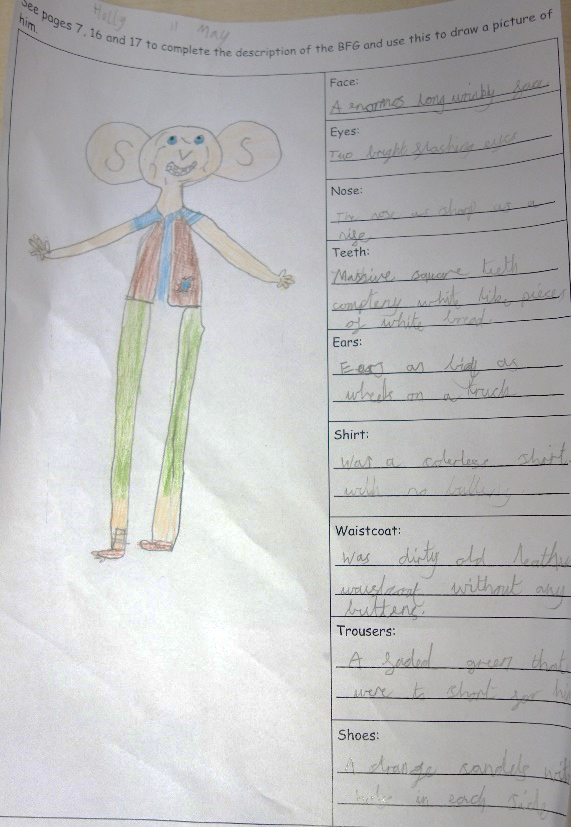 Holly 11 May
See pages 7, 16 and 17 to complete the description of the BFG and use this to draw a picture of
him.
S S
Face:
A enormes long wrinkly face
Eyes:
Too bright flashing eyes
Nose:
The nose as sharp as a
nife
Teeth:
Massive square teeth
completey white like pieces
of white bread.
Ears:
Ears as big as
wheels on a truck
Shirt:
Was a coler less shirt
with no
Waistcoat:
Was dirty old leather
waistcoat without any
buttens.
Trousers:
A faded green that
were to short for hi
Shoes:
A strange sandels wit
in each side